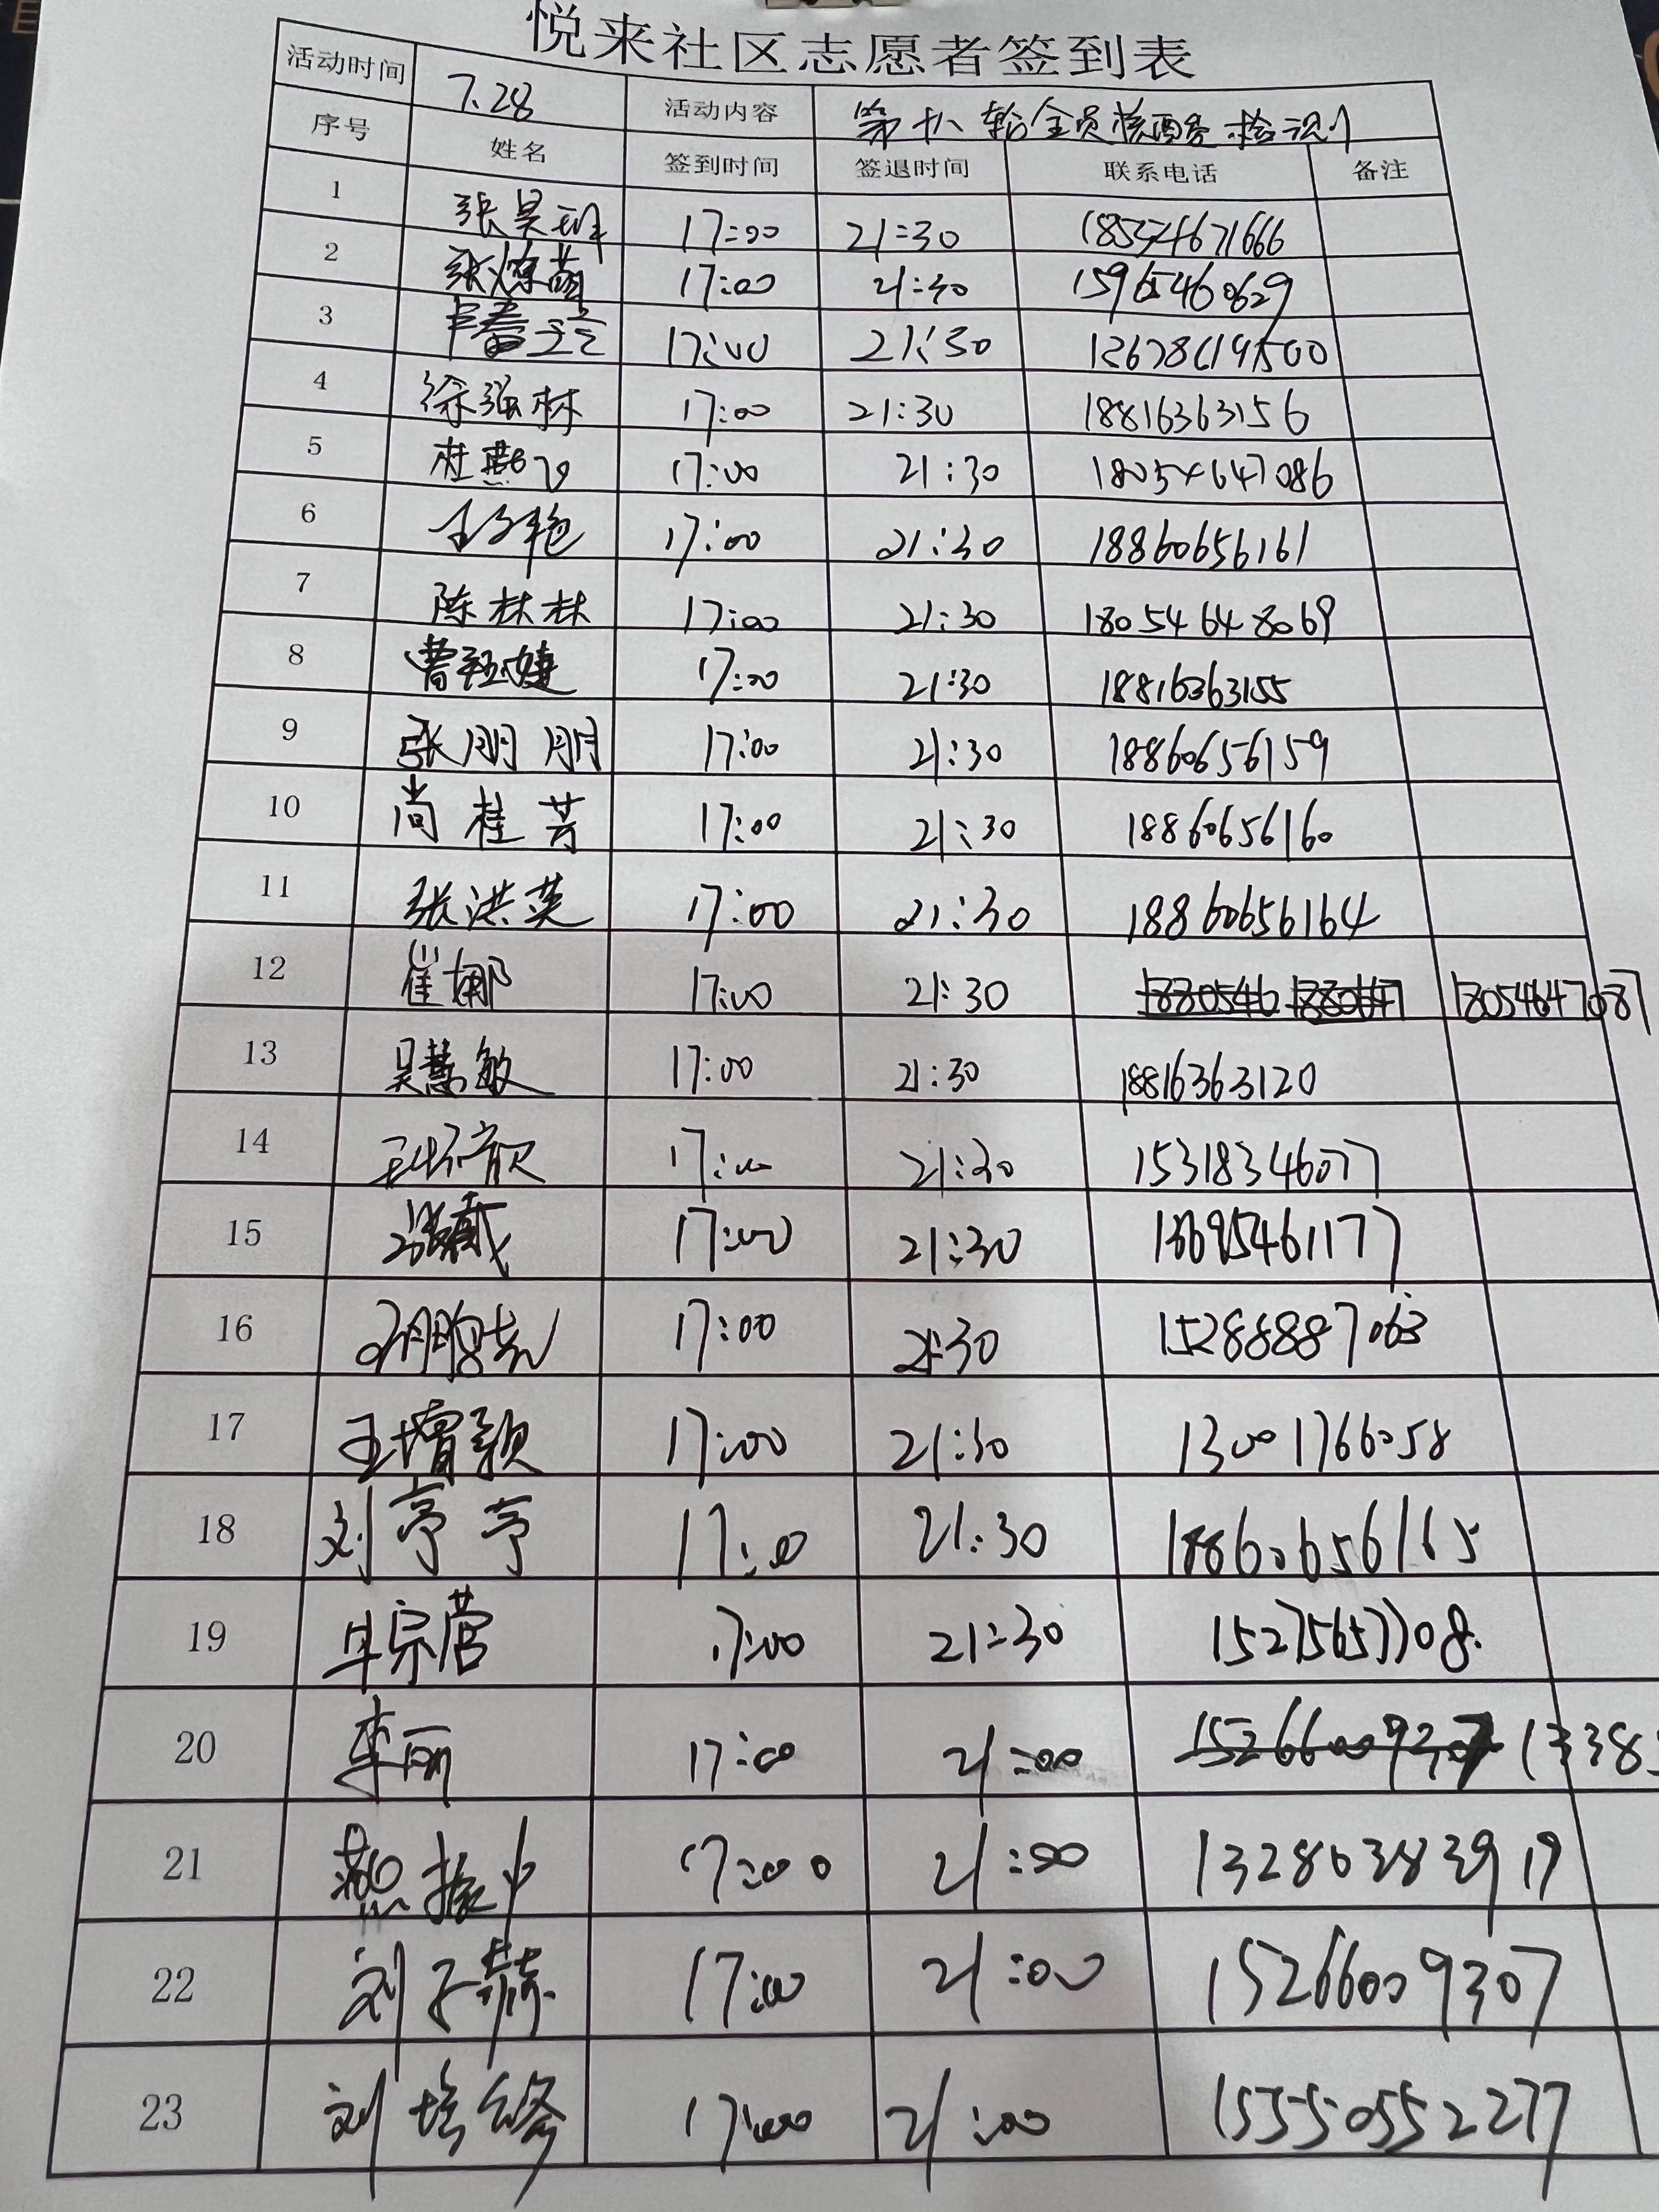 悦来社区志愿者签到表
活动时间 7.28 活动内容 第十八轮全员核酸检测
序号 姓名 签到时间 签退时间 联系电话 备注
1 张昊 17:00 21:30 18554671666
2 张燎萌 17:00 21:30 15965460629
3 17:00 21:30
4 徐强林 17:00 21:30 18816363156
5 杜燕飞 17:00 21:30 18054647086
6 王子艳 17:00 21:30 18860656161
7 陈林林 17:00 21:30 18054648069
8 曹钰婕 17:00 21:30 18816363155
9 张朋朋 17:00 21:30 18860656159
10 尚桂芳 17:00 21:30 18860656160
11 张洪英 17:00 21:30 18860656164
12 崔娜 17:00 21:30 18054647087
13 吴慧敏 17:00 21:30 18816363120
14 17:00 21:30 15318346077
15 17:00 21:30 13695461177
16 17:00 21:30 15288887063
17 王增颖 17:00 21:30 13001766058
18 刘亭亭 17:00 21:30 18860656165
19 牟宗营 17:00 21:30 15275657708
20 李丽 17:00 21:00 15266009307 13385
21 燕振中 17:00 21:00 13280383919
22 刘子赫 17:00 21:00 15266009307
23 刘培峰 17:00 21:00 15550552277